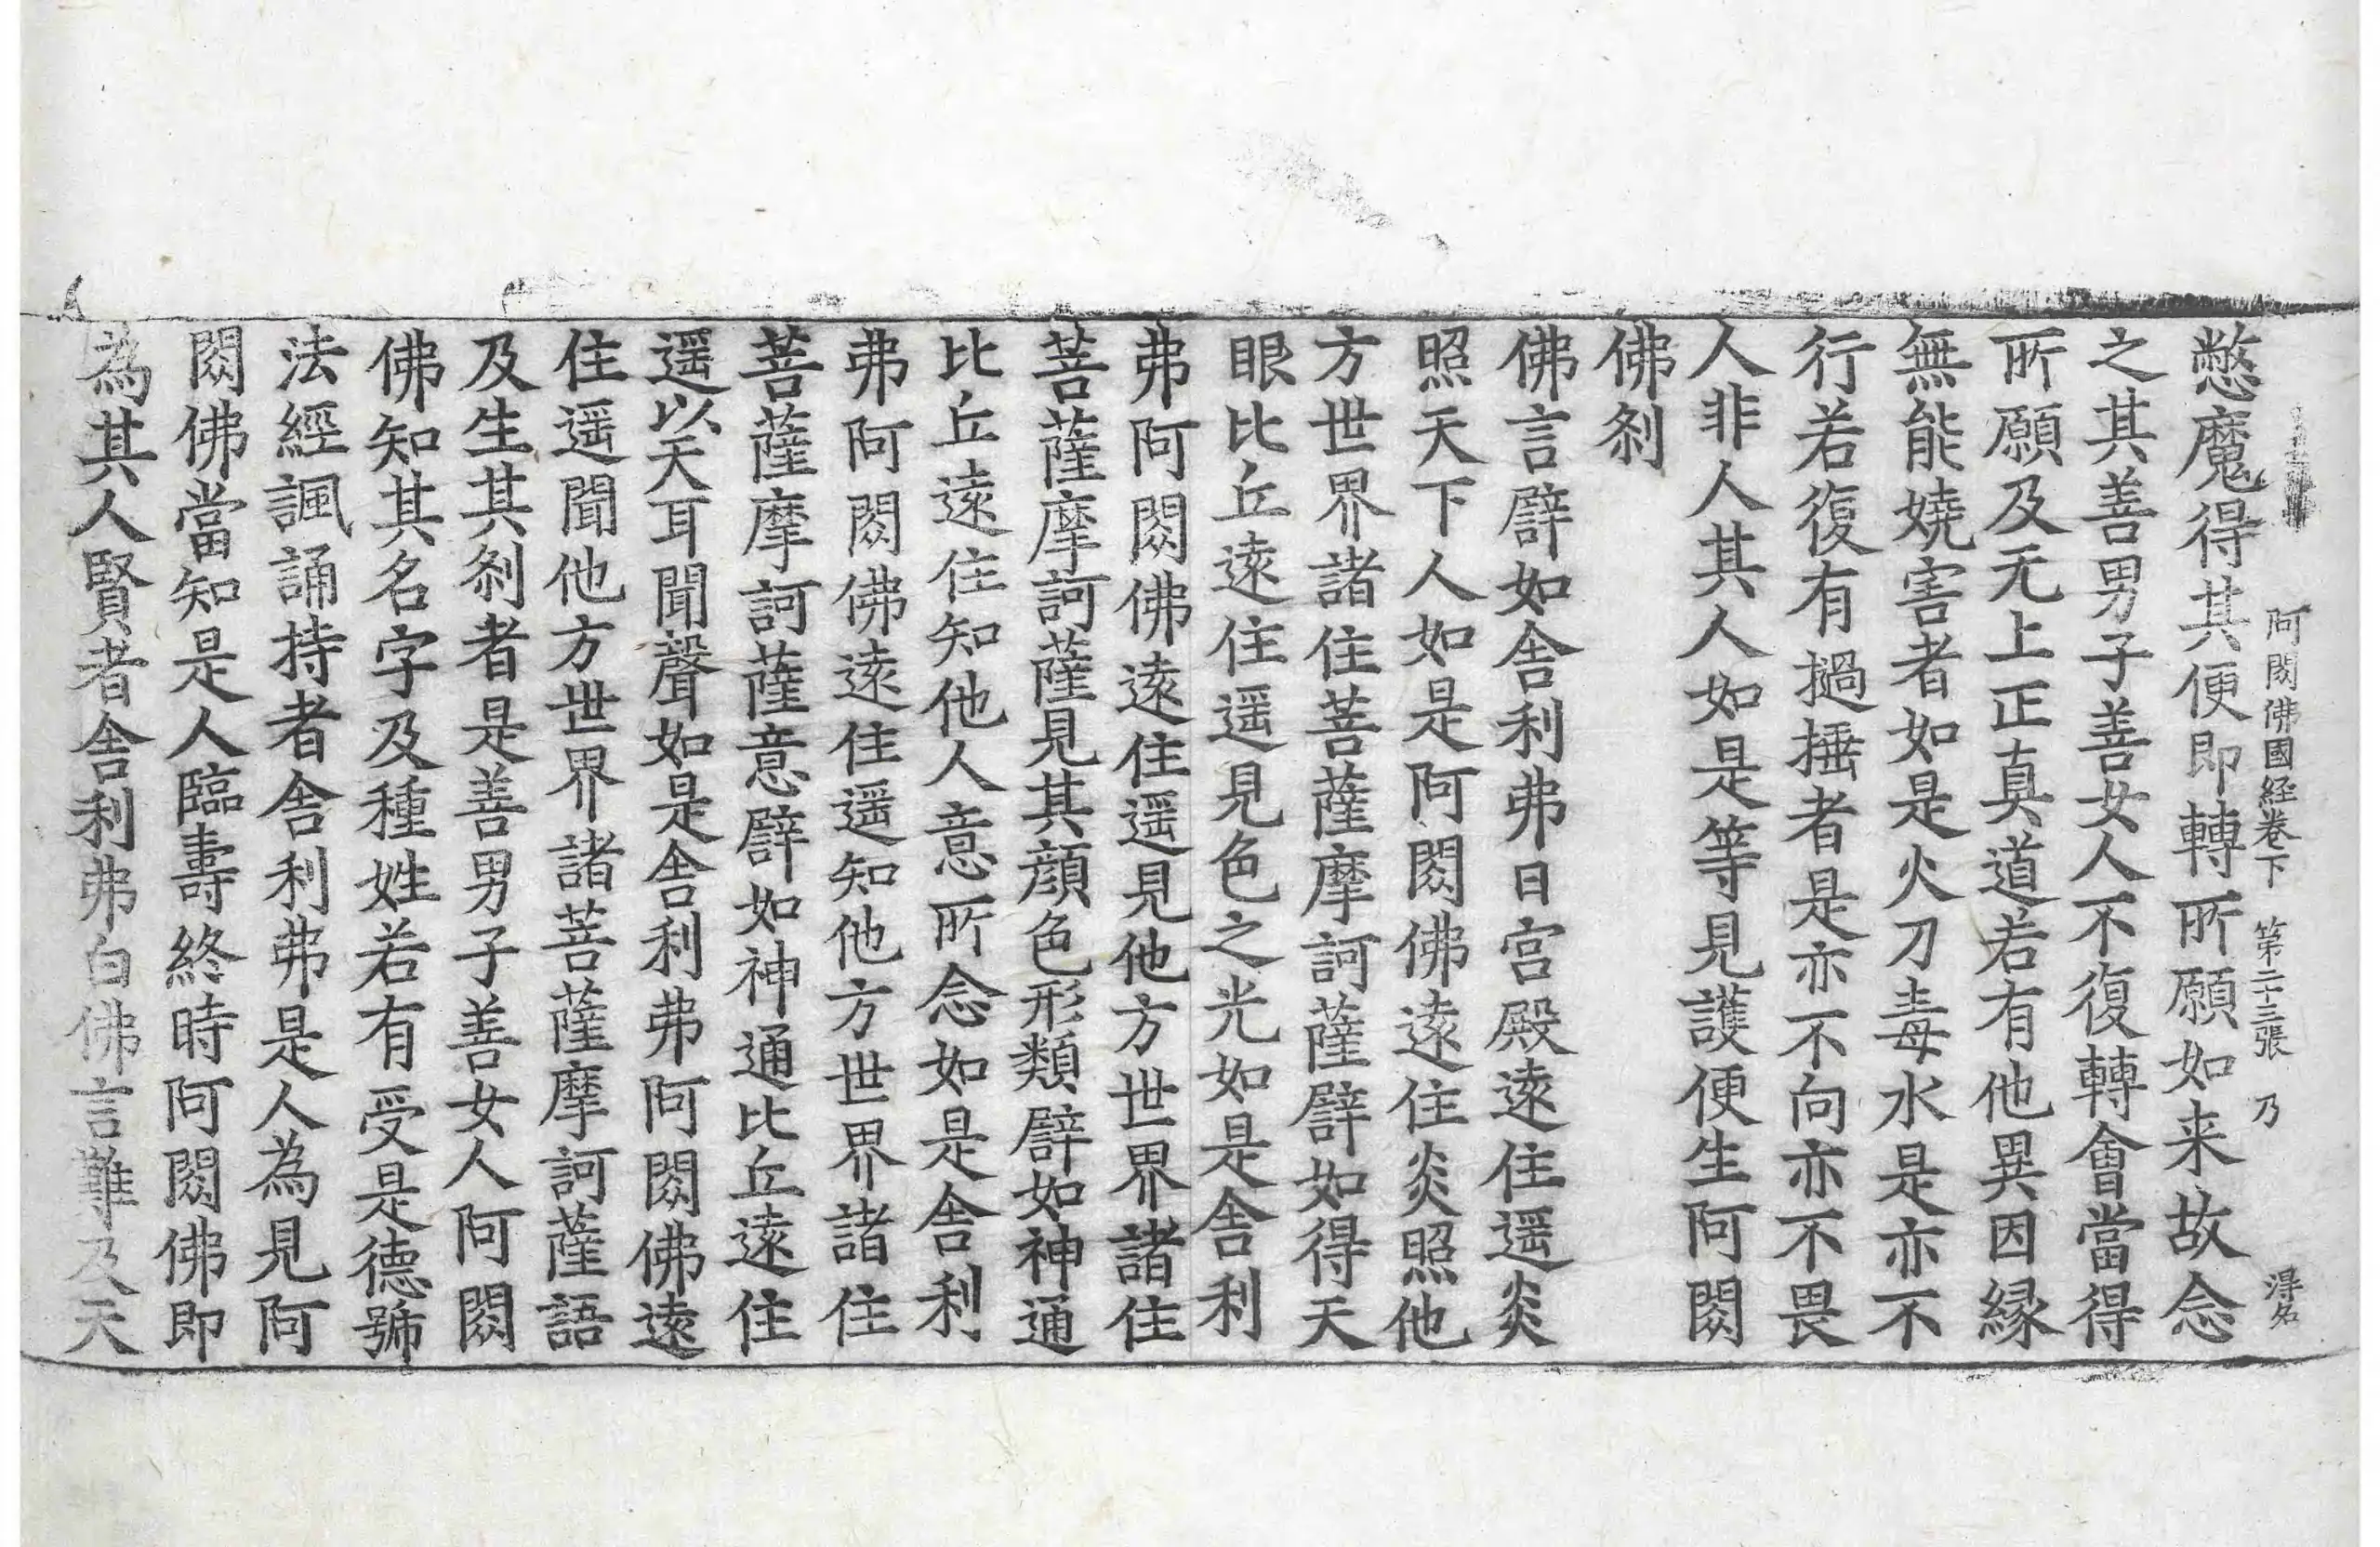 阿閦佛國経卷下 第二十三張 乃 淂名
憋魔得其便即轉所願如来故念
之其善男子善女人不復轉會當得
所願及无上正真道若有他異因緣
無能嬈害者如是火刀毒水是亦不
行若復有撾捶者是亦不向亦不畏
人非人其人如是等見護便生阿閦
佛刹
佛言譬如舍利弗日宮殿遠住遥炎
照天下人如是阿閦佛遠住炎照他
方世界諸住菩薩摩訶薩譬如得天
眼比丘遠住遥見色之光如是舍利
弗阿閦佛遠住遥見他方世界諸住
菩薩摩訶薩見其顔色形類譬如神通
比丘遠住知他人意所念如是舍利
弗阿閦佛遠住遥知他方世界諸住
菩薩摩訶薩意譬如神通比丘遠住
遥以天耳聞聲如是舍利弗阿閦佛遠
住遥聞他方世界諸菩薩摩訶薩語
及生其刹者是善男子善女人阿閦
佛知其名字及種姓若有受是德號
法經諷誦持者舍利弗是人為見阿
閦佛當知是人臨壽終時阿閦佛即
為其人賢者舍利弗白佛言難及天